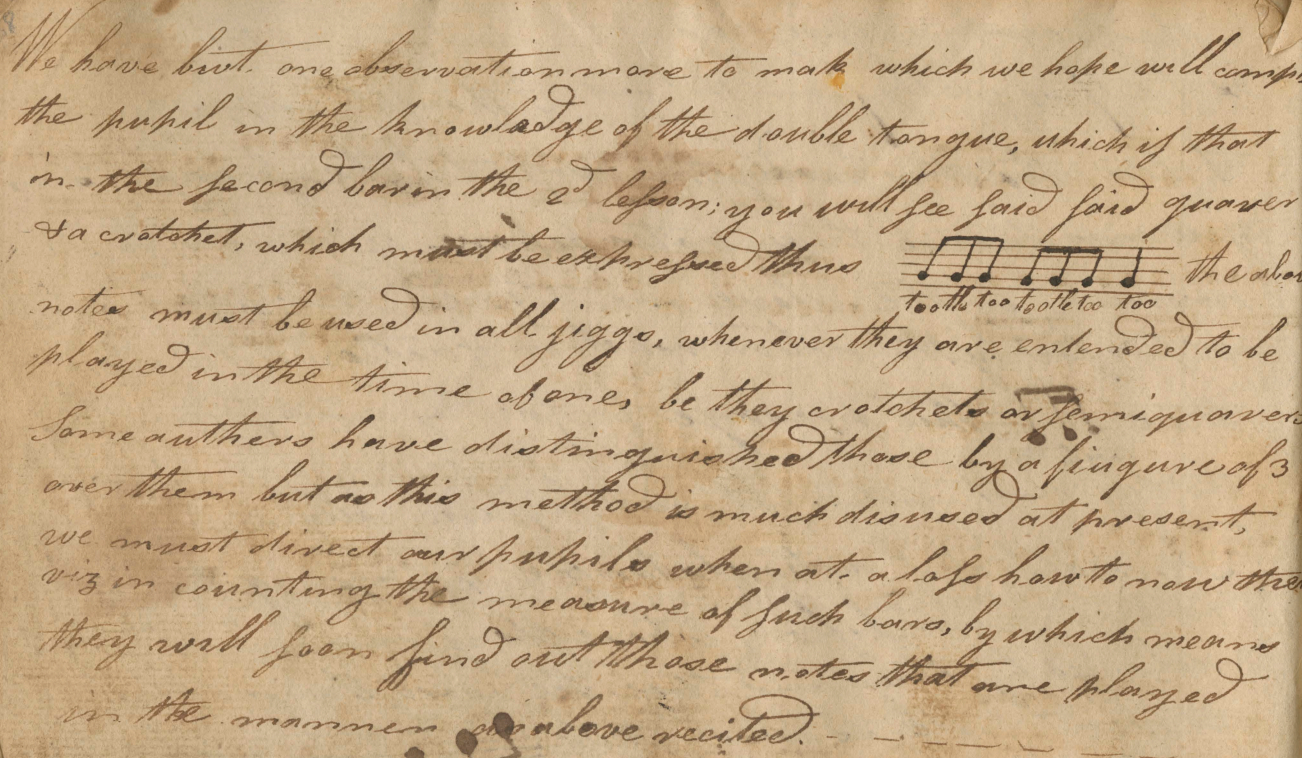 We have but one observation more to make which we hope will comp
the pupil in the knowladge of the double tongue, which is that
in the second bar in the 2d lesson; you will see said said quaver
& a crotchet, which must be expressed thus the abov
tootle too tootle too too
notes must be used in all jiggs, whenever they are entended to be
played in the time of one, be they crotchets or semiquavers
Some authers have distinguished those by a fiugure of 3
over them but as this method is much disused at present,
we must direct our pupils when at a loss how to now the
viz in counting the measure of such bars, by which means
they will soon find out those notes that are played
in the manner as above recited.